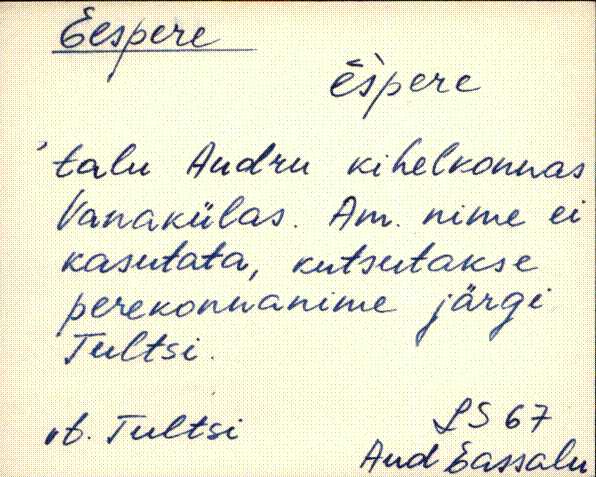 Eespere
ēs̀pere
talu Audru kihelkonnas
Vanakülas. Am. nime ei
kasutata, kutsutakse
perekonnanime järgi
Tultsi.
vt. Tultsi
LS 67
Aud Eassalu